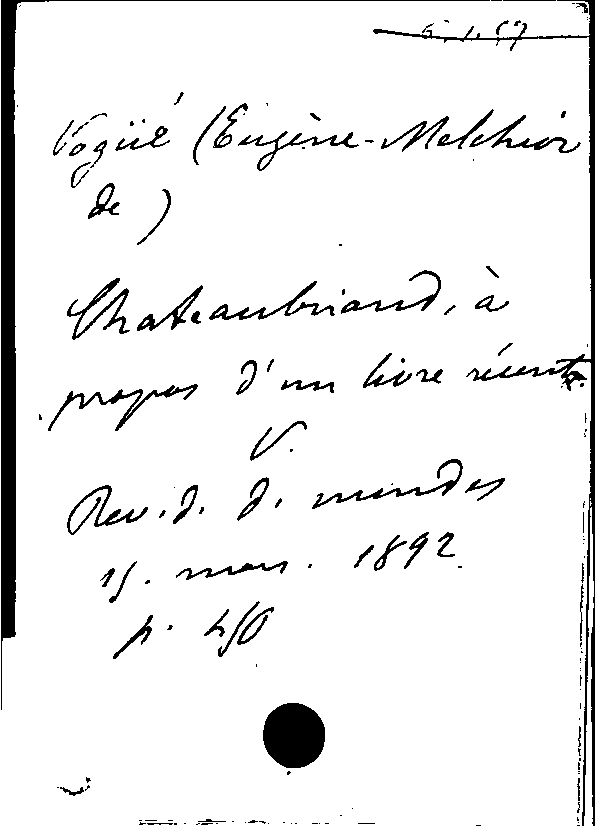 6.1.57
Vogüé (Eugène-Melchior
de)
Chateaubriand, à
propos d'un livre récent.
V.
Rev. d. d. mondes
15. mars. 1892.
p. 450